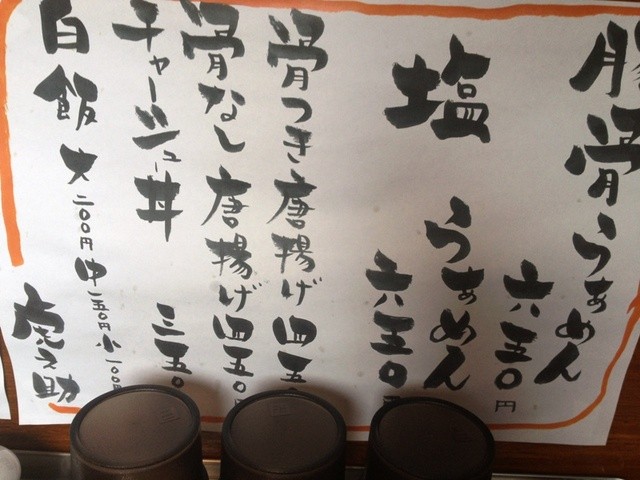 豚骨らぁめん
六五〇円
塩 らぁめん
六五〇
骨つき唐揚げ 四五
骨なし 唐揚げ 四五〇円
チャーシュー丼 三五〇
白飯 大 二〇〇円 中 一五〇円 小 一〇〇円
虎之助